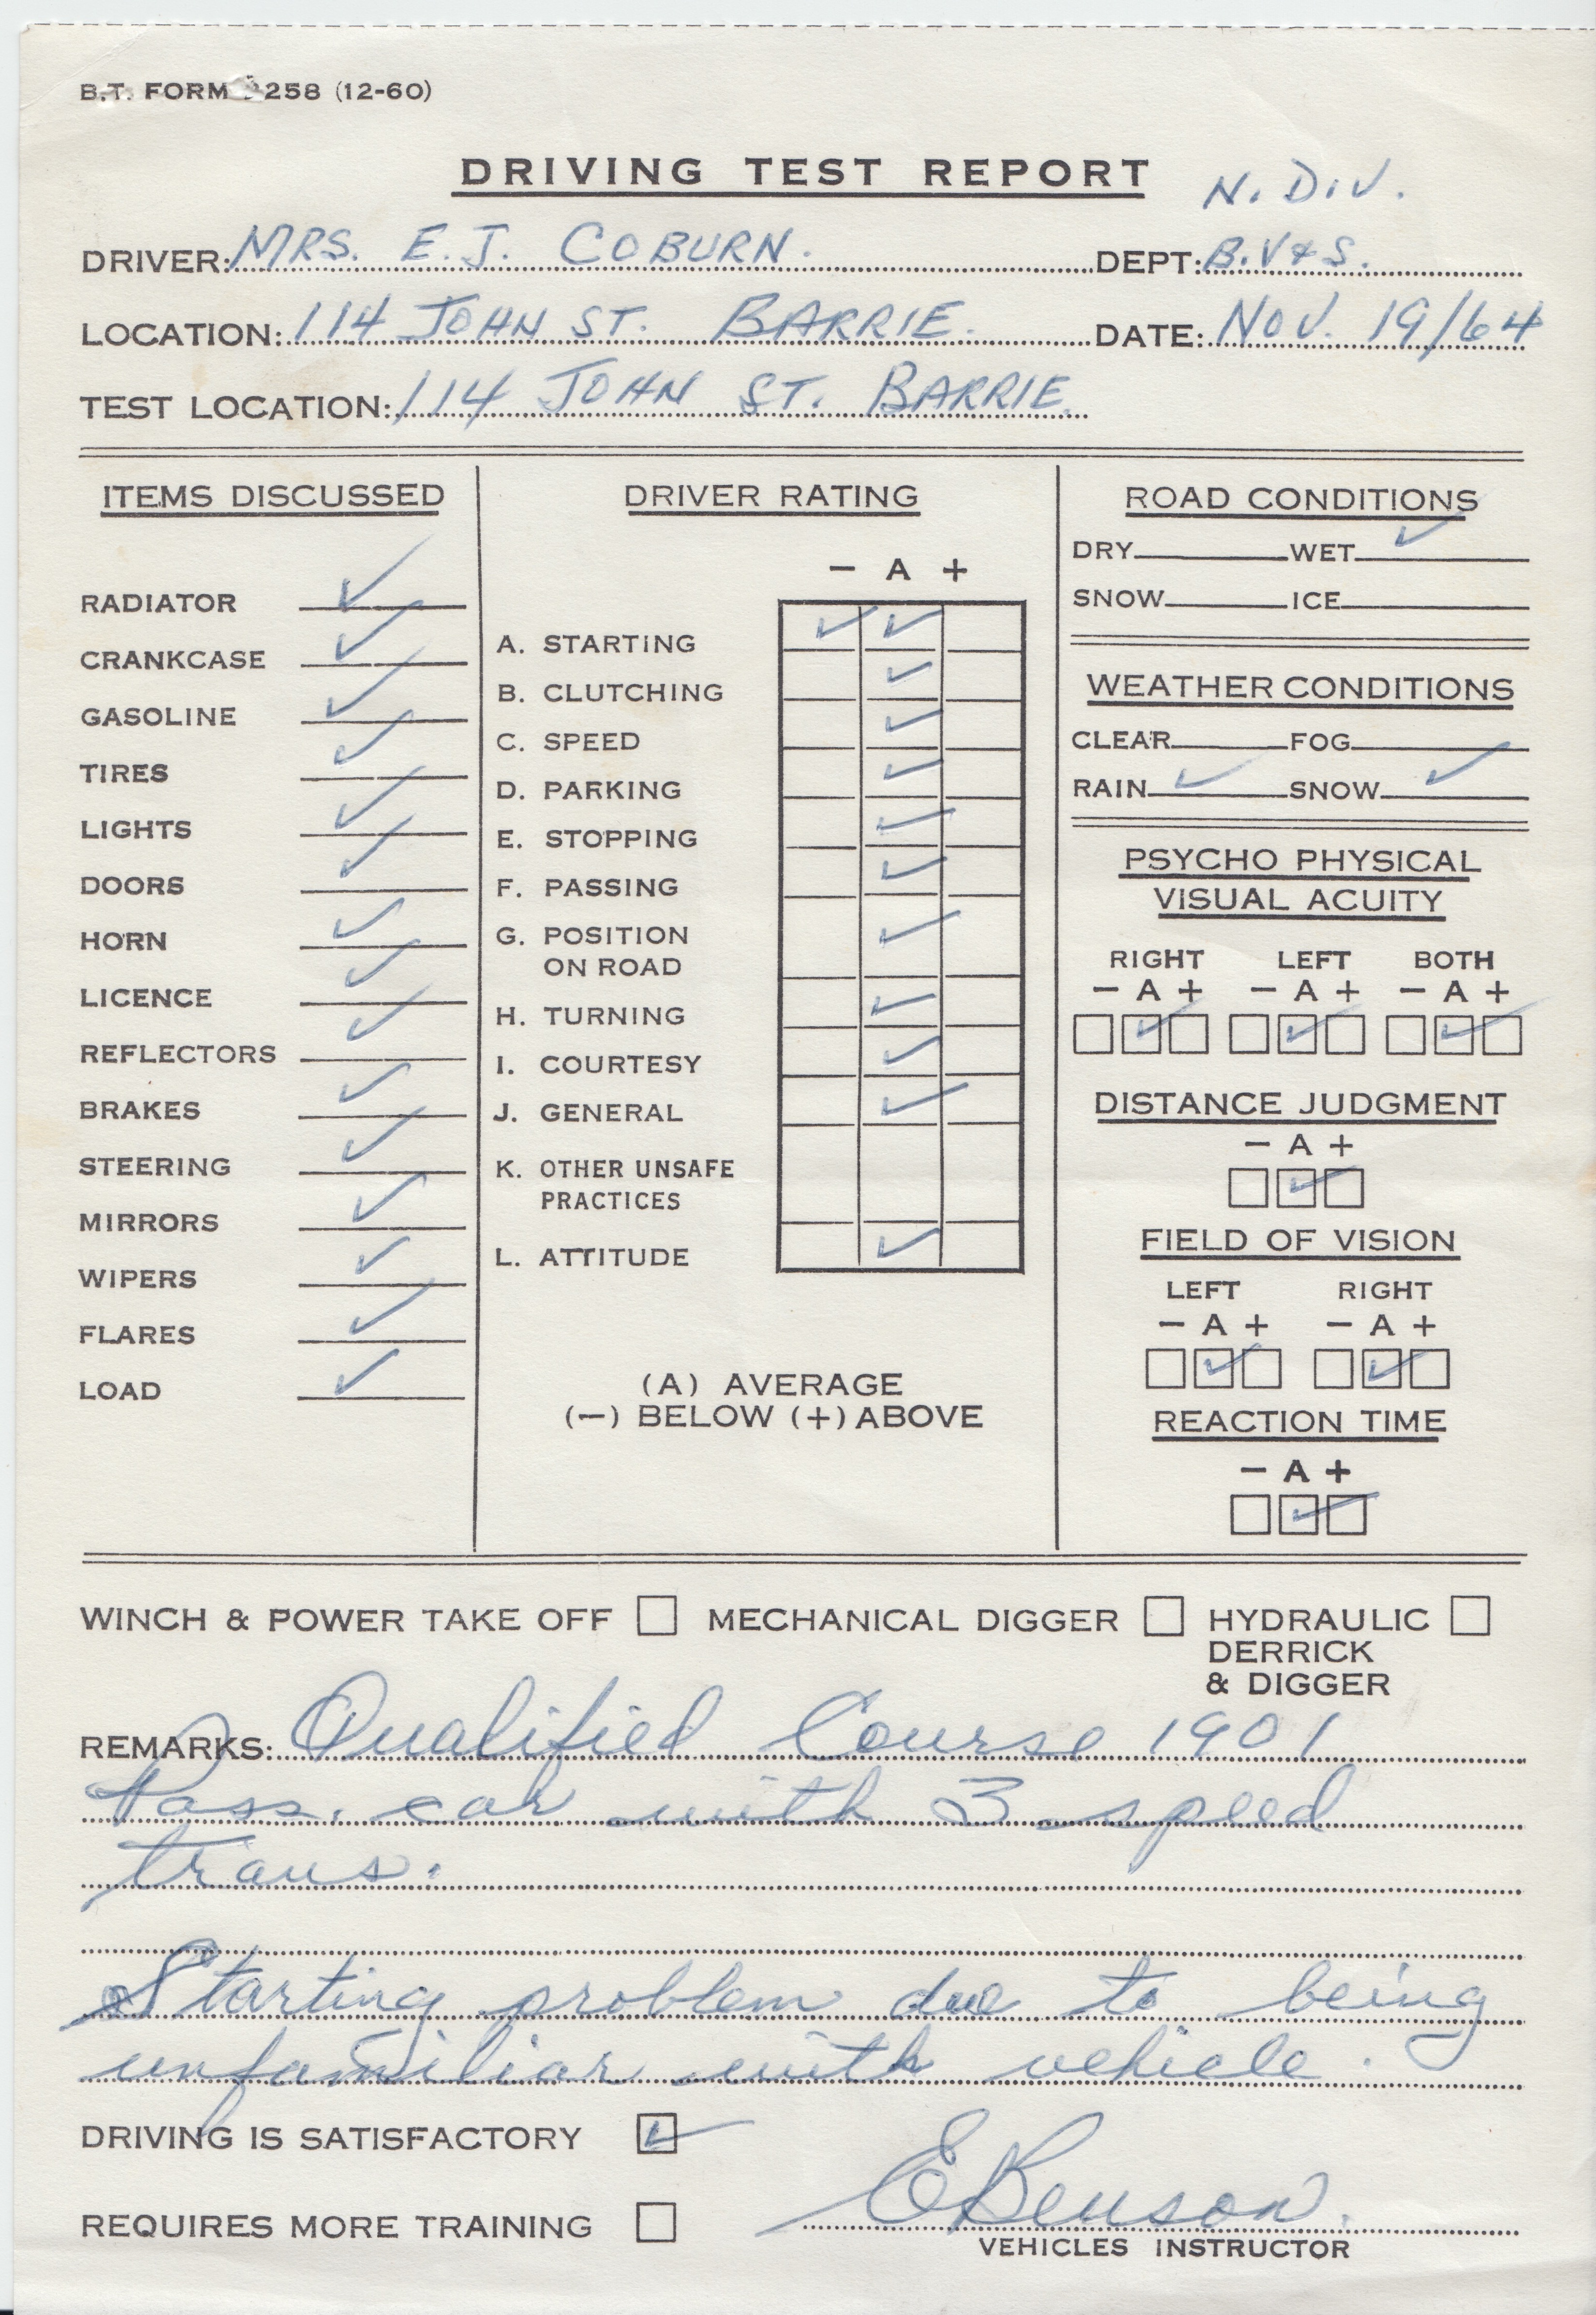 B.T. FORM 258 (12-60)
DRIVING TEST REPORT
N. DIV.
DRIVER: MRS. E. J. COBURN. DEPT: B.V&S.
LOCATION: 114 JOHN ST. BARRIE. DATE: NOV. 19/64
TEST LOCATION: 114 JOHN ST. BARRIE.
ITEMS DISCUSSED
RADIATOR ✓
CRANKCASE ✓
GASOLINE ✓
TIRES ✓
LIGHTS ✓
DOORS ✓
HORN ✓
LICENCE ✓
REFLECTORS ✓
BRAKES ✓
STEERING ✓
MIRRORS ✓
WIPERS ✓
FLARES ✓
LOAD ✓
DRIVER RATING
— A +
A. STARTING ✓ ✓
B. CLUTCHING ✓
C. SPEED ✓
D. PARKING ✓
E. STOPPING ✓
F. PASSING ✓
G. POSITION
ON ROAD ✓
H. TURNING ✓
I. COURTESY ✓
J. GENERAL ✓
K. OTHER UNSAFE
PRACTICES
L. ATTITUDE ✓
(A) AVERAGE
(—) BELOW (+) ABOVE
ROAD CONDITIONS
DRY WET ✓
SNOW ICE
WEATHER CONDITIONS
CLEAR FOG
RAIN ✓ SNOW ✓
PSYCHO PHYSICAL
VISUAL ACUITY
RIGHT LEFT BOTH
— A + — A + — A +
☐ ☑ ☐ ☐ ☑ ☐ ☐ ☑ ☐
DISTANCE JUDGMENT
— A +
☐ ☑ ☐
FIELD OF VISION
LEFT RIGHT
— A + — A +
☐ ☑ ☐ ☐ ☑ ☐
REACTION TIME
— A +
☐ ☑ ☐
WINCH & POWER TAKE OFF ☐ MECHANICAL DIGGER ☐ HYDRAULIC ☐
DERRICK
& DIGGER
REMARKS: Qualified Course 1901
Pass. car with 3 speed
trans.
Starting problem due to being
unfamiliar with vehicle.
DRIVING IS SATISFACTORY ☑
REQUIRES MORE TRAINING ☐
E Benson.
VEHICLES INSTRUCTOR